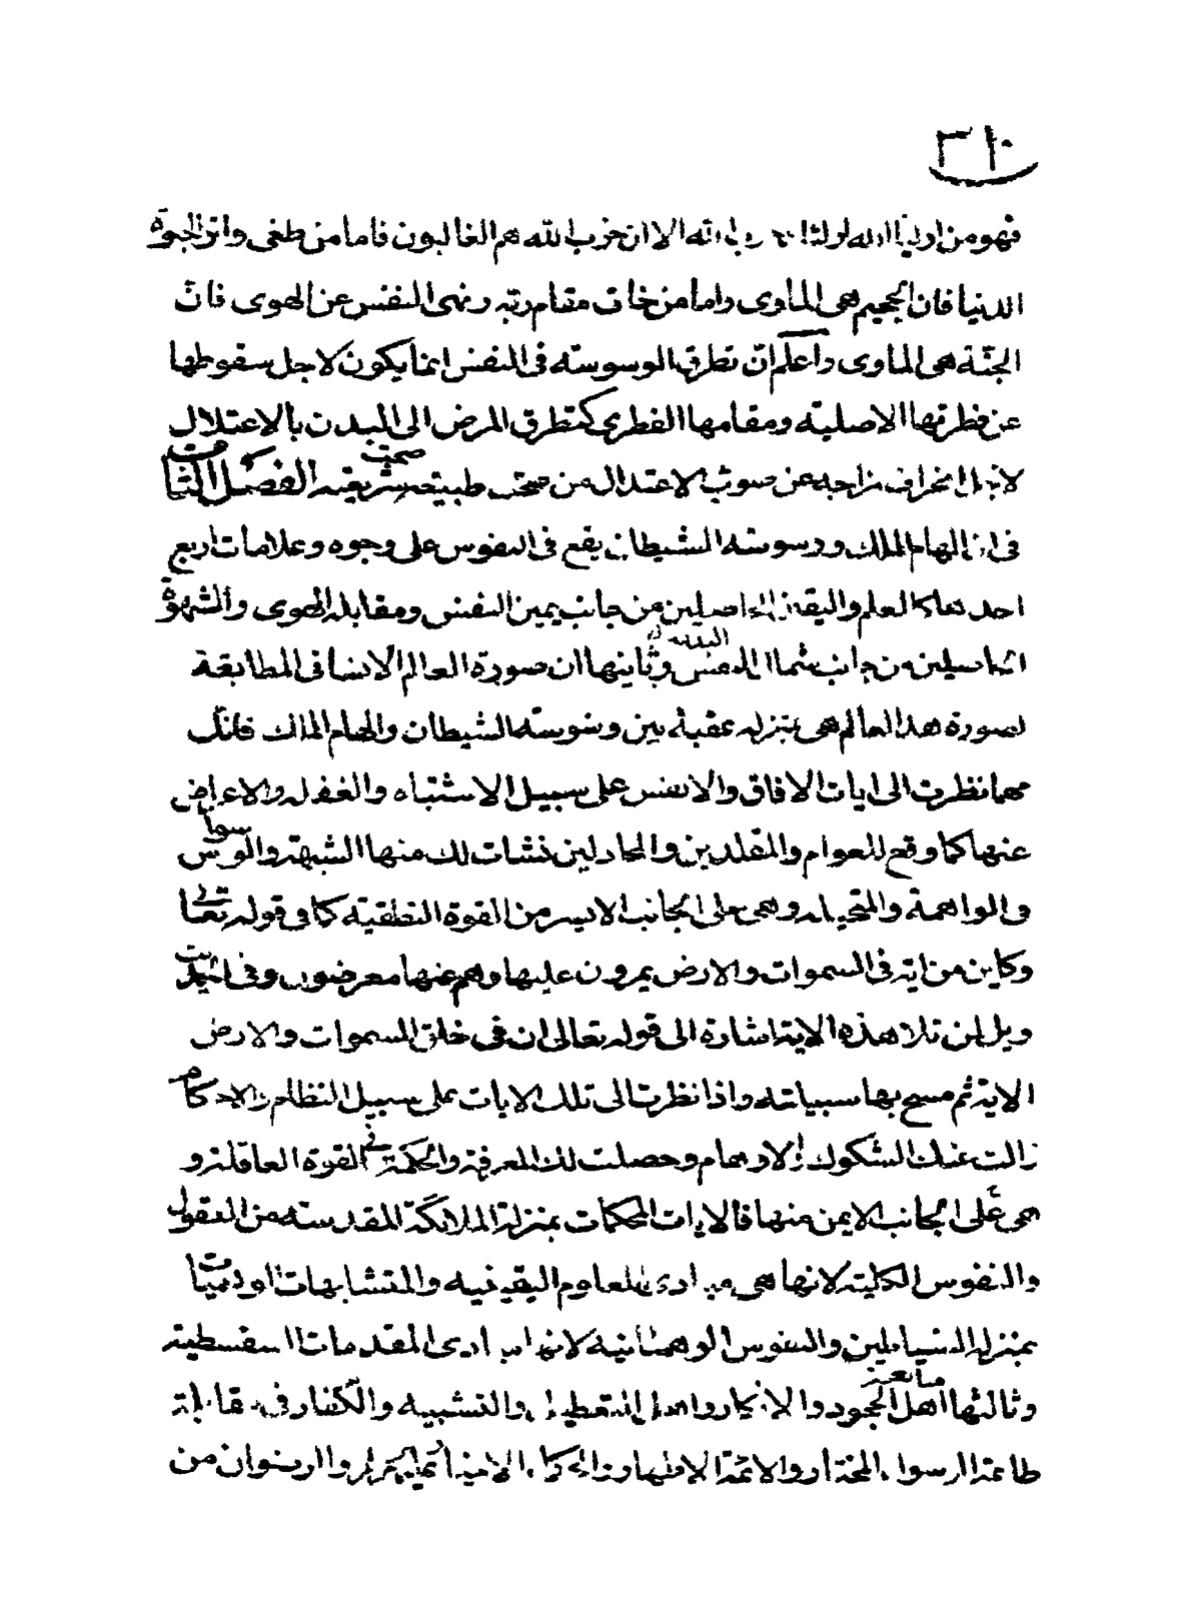 ٣١٠
فهو من اولياء الله اولئك حزب الله الا ان حزب الله هم الغالبون فاما من طغى واثر الحيوة
الدنيا فان الجحيم هى الماوى واما من خاف مقام ربه ونهى النفس عن الهوى فان
الجنة هى الماوى واعلم ان تطرق الوسوسة فى النفس انما يكون لاجل سقوطها
عن فطرتها الاصلية ومقامها الفطرى كتطرق المرض الى البدن بالاعتلال
لاجل انحراف مزاجه عن صوب الاعتدال من صحت طبيعته صحت شريعته الفصل الثامن
فى ان الهام الملك ووسوسة الشيطان يقع فى النفوس على وجوه وعلامات اربع
احدها كالعلم واليقين الحاصلين من جانب يمين النفس ومقابله الهوى والشهوة
الحاصلين من جانب شمال النفس وثانيها ان صورة العالم الانسانى المطابقة
لصورة هذا العالم هى بمنزلة عقبة بين وسوسة الشيطان والهام الملك فانك
مهما نظرت الى ايات الافاق والانفس على سبيل الاشتباه والغفلة والاعراض
عنها كما وقع للعوام والمقلدين والمجادلين نشات لك منها الشبهة والوسواس
والواهمة والمتخيلة وهى على الجانب الايسر من القوة النطقية كما فى قوله تعالى
وكاين من اية فى السموات والارض يمرون عليها وهم عنها معرضون وفى الحديث
ويل لمن تلا هذه الاية اشارة الى قوله تعالى ان فى خلق السموات والارض
الاية ثم مسح بها سبلته واذا نظرت الى تلك الايات على سبيل النظام والاحكام
زالت عنك الشكوك والاوهام وحصلت لك المعرفة والحكمة فى القوة العاقلة و
هى على الجانب الايمن منها فالايات المحكمات بمنزلة الملائكة المقدسة من العقول
والنفوس الكلية لانها هى مبادى للعلوم اليقينية والمتشابهات الوهميات
بمنزلة الشياطين والنفوس الوهمانية لانها مبادى المقدمات السفسطية
وثالثها متابعة اهل الجحود والانكار واهل التعطيل والتشبيه والكفار فى مقابلة
طاعة الرسول المختار والائمة الاطهار والرضوان من